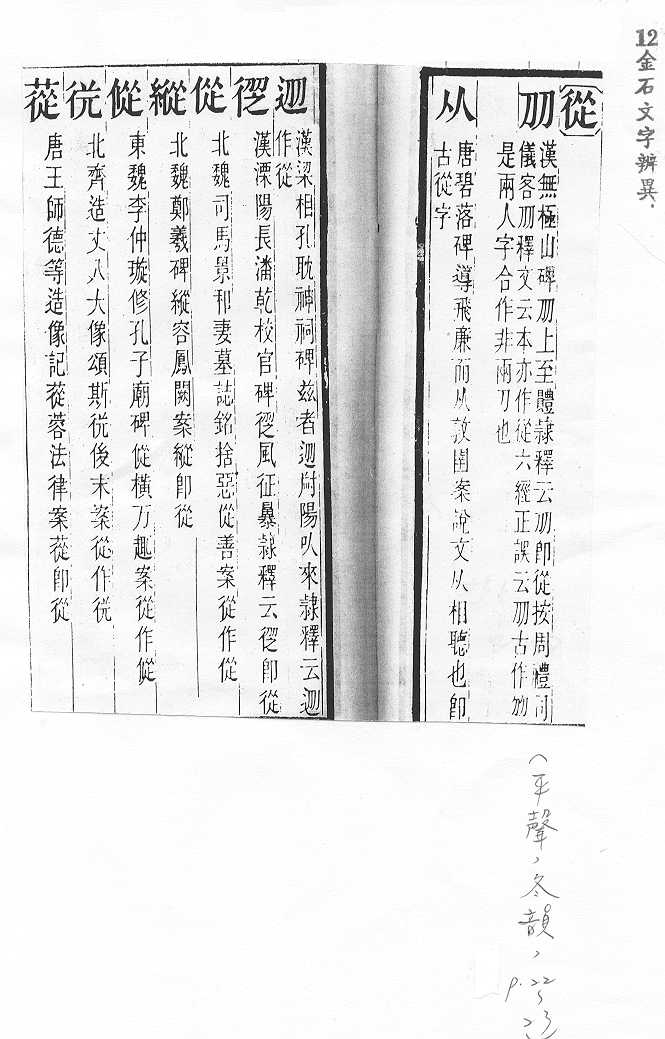 12金石文字辨異.
從
刕
漢無極山碑刕上至體隷釋云刕即從按周禮司
儀客刕釋文云本亦作從六經正誤云刕古作刕
是兩人字合作非兩刀也
从
唐碧落碑導飛廉而从敦圄案說文从相聽也即
古從字
迊
漢梁相孔耽神祠碑兹者迊尉陽以來隷釋云迊
作從
漢溧陽長潘乾校官碑從風征暴隷釋云從即從
從
北魏司馬景和妻墓誌銘捨惡從善案從作從
縱
北魏鄭羲碑縱容鳳闕案縱即從
東魏李仲璇修孔子廟碑從橫万趣案從作
北齊造丈八大像頌斯後末案從作
蓯
唐王師德等造像記蓯蓉法律案蓯即從
(平聲,冬韻,
p.22
23)